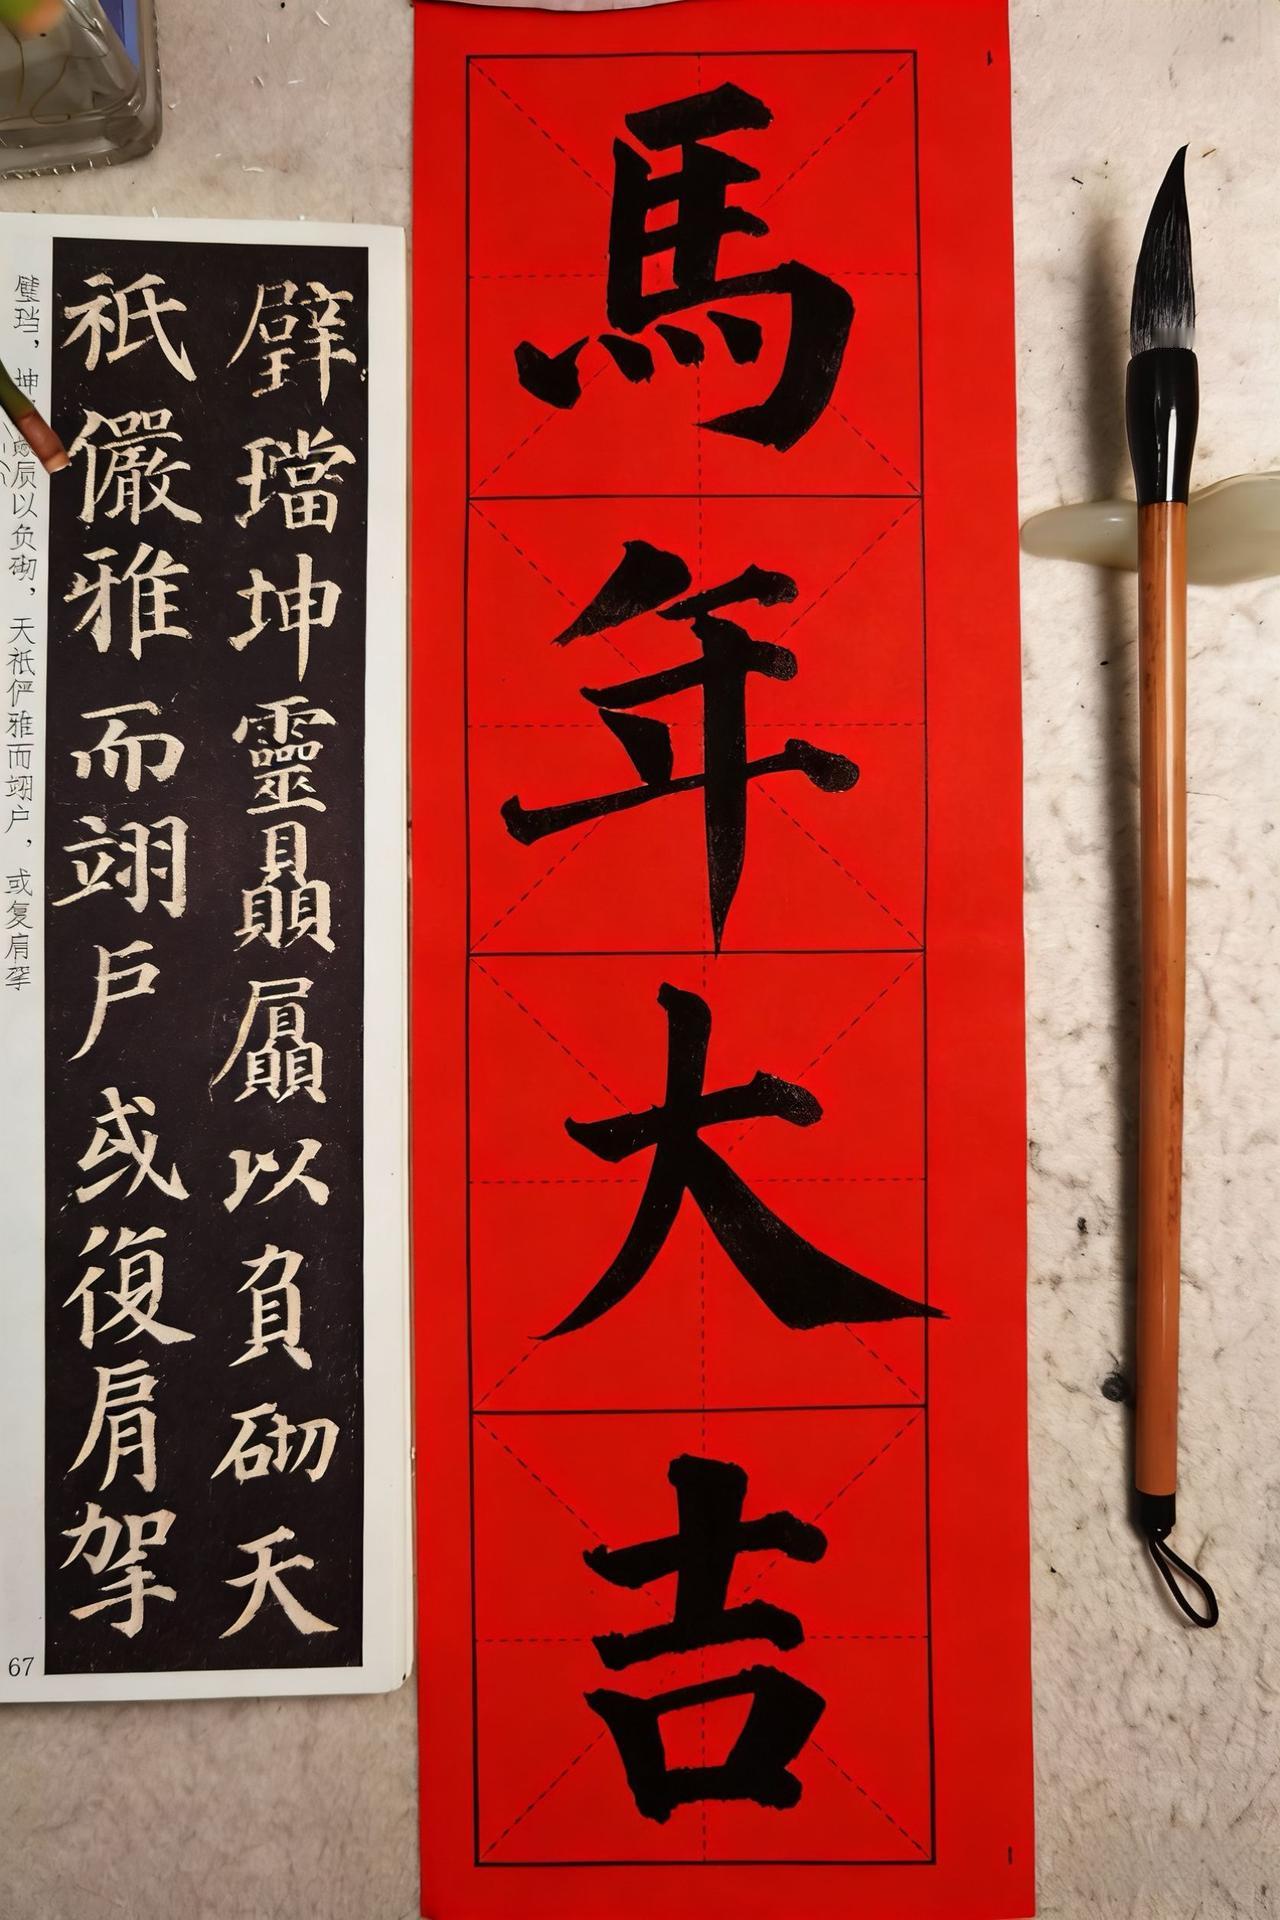 馬年大吉
璧璫坤靈贔屭以負砌天
祇儼雅而翊戶或復肩挐
璧珰，坤
屃以负砌，天祇俨雅而翊户，或复肩挐
67